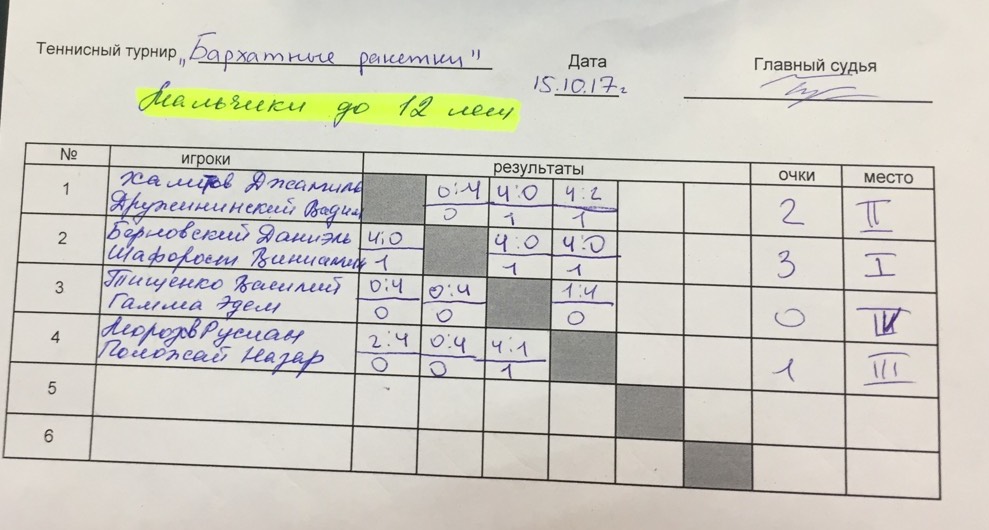 Теннисный турнир „Бархатные ракетки"
Дата
15.10.17г
Главный судья
Мальчики до 12 лет
№ игроки результаты очки место
1 Халитов Джамиль 0:4 4:0 4:2 2 II
Дружининский Вадим 0 1 1
2 Берновский Даниэль 4:0 4:0 4:0 3 I
Шафорост Виниамин 1 1 1
3 Тищенко Василий 0:4 0:4 1:4 0 IV
Гамма Эдем 0 0 0
4 Морозов Руслан 2:4 0:4 4:1 1 III
Положай Назар 0 0 1
5
6